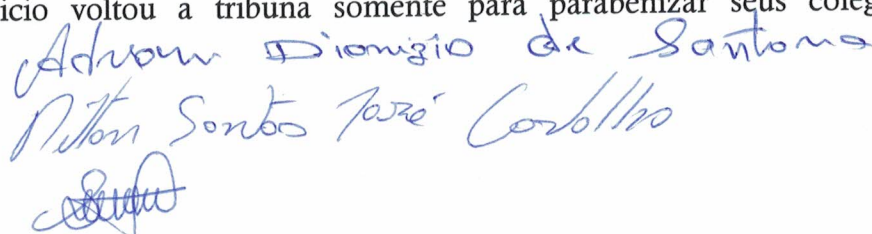 icio voltou a tribuna somente para parabenizar seus coleg
Adrom Dionizio de Santana
Nilton Santos José Carvalho